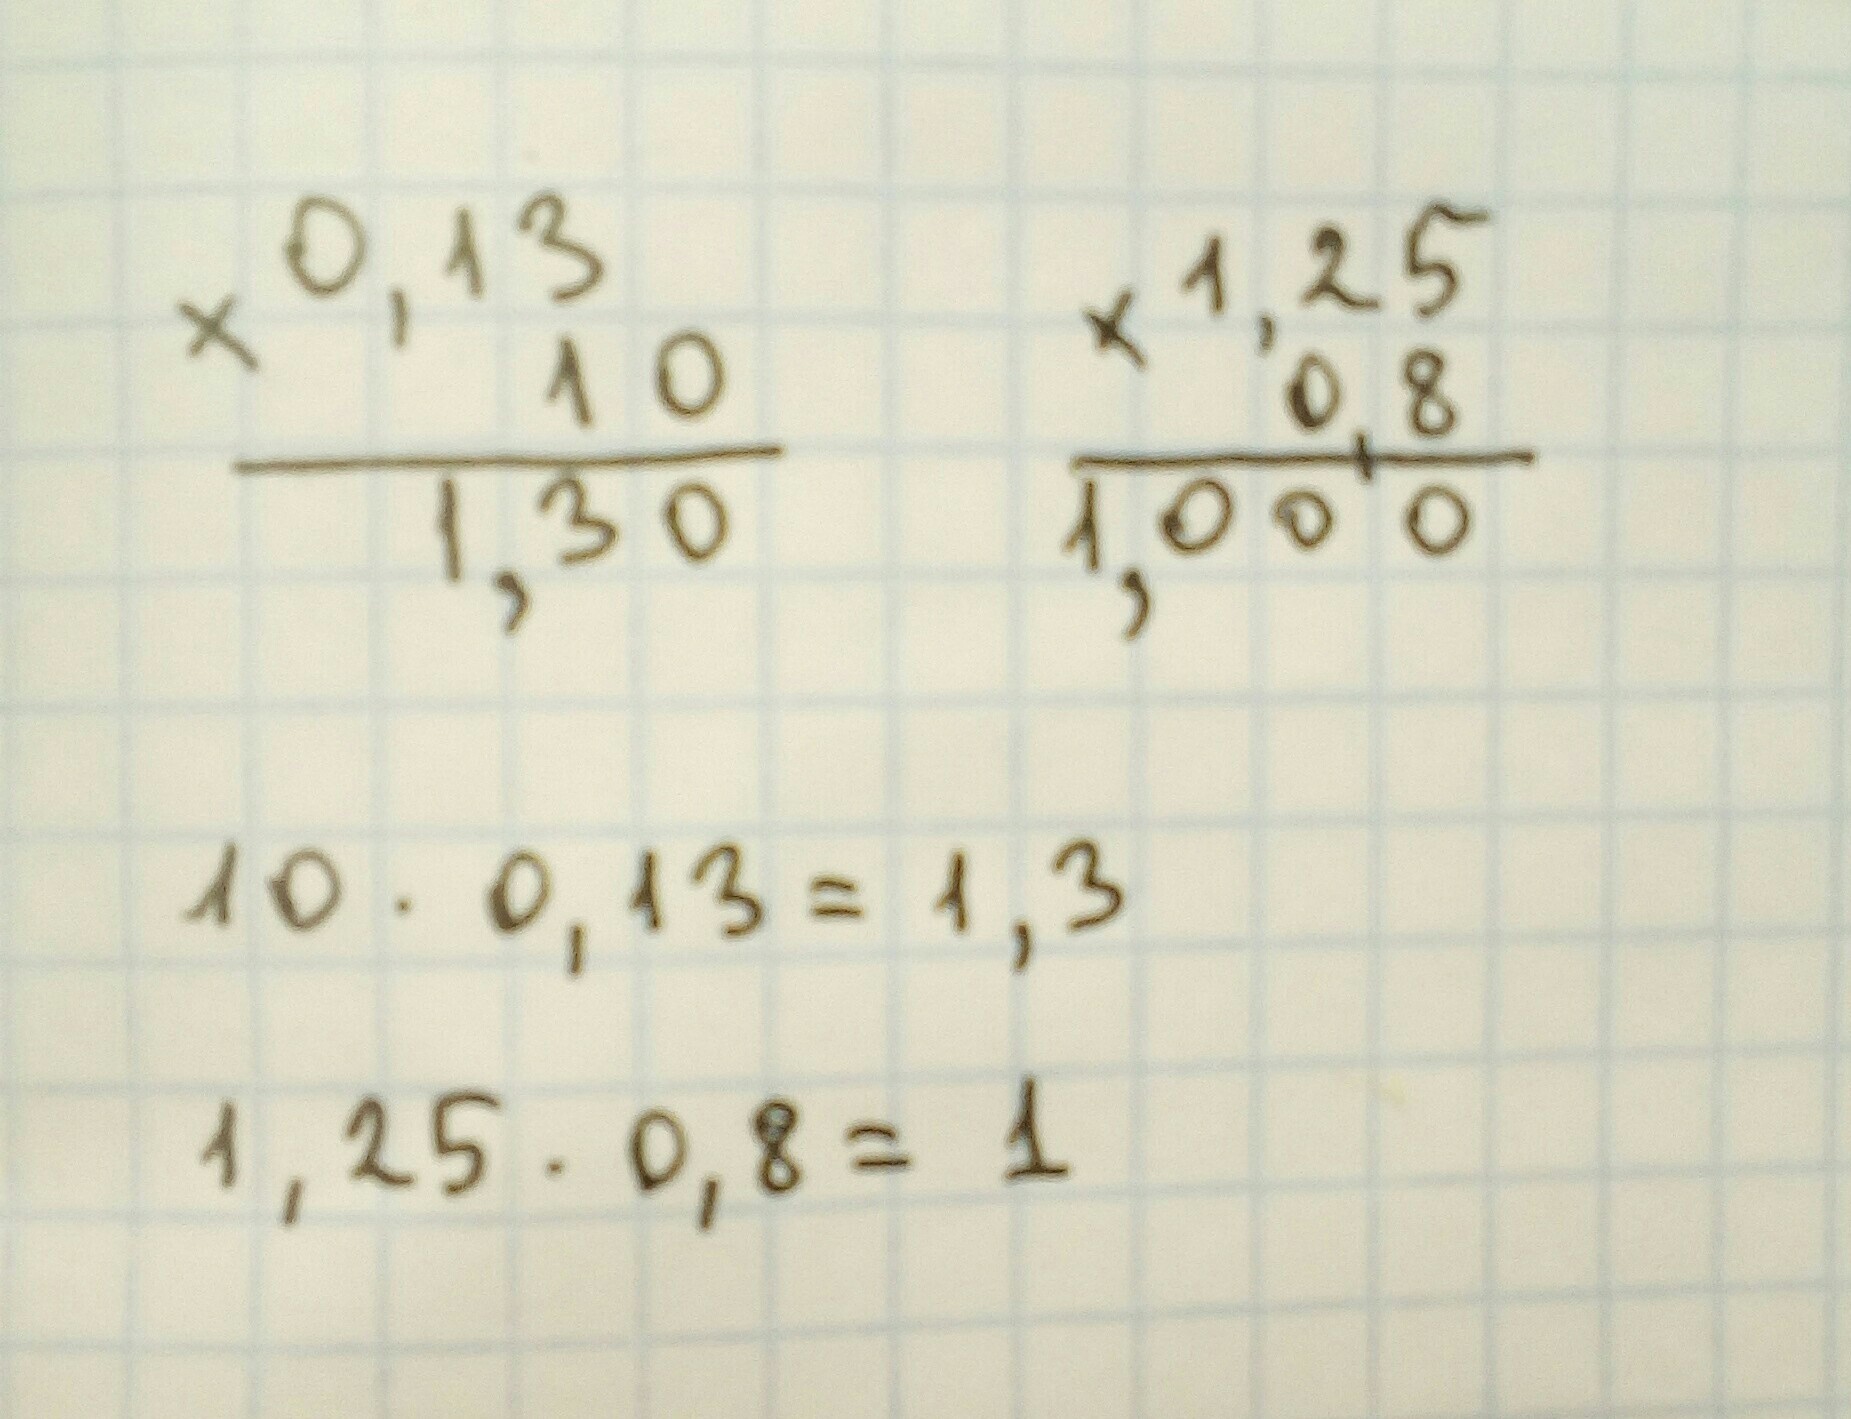 0,13
× 10
1,30
1,25
× 0,8
1,000
10 · 0,13 = 1,3
1,25 · 0,8 = 1